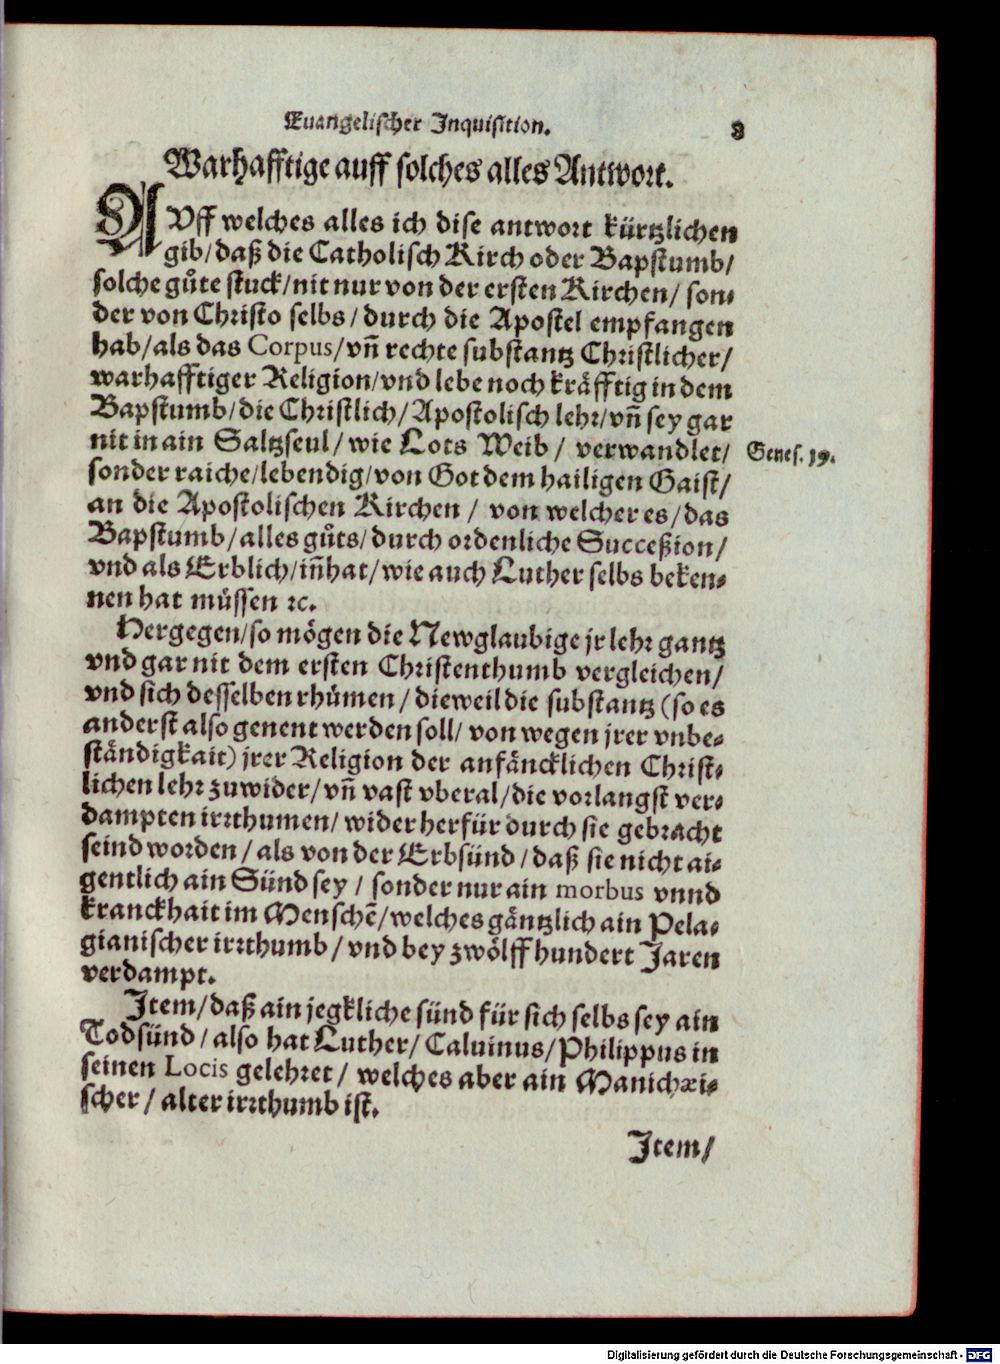 Euangelischer Inquisition. 3
Warhafftige auff solches alles Antwort.
AUff welches alles ich dise antwort kürtzlichen
gib/ daß die Catholisch Kirch oder Bapstumb/
solche gůte stuck/ nit nur von der ersten Kirchen/ son⸗
der von Christo selbs/ durch die Apostel empfangen
hab/ als das Corpus/ vñ rechte substantz Christlicher/
warhafftiger Religion/ vnd lebe noch kräfftig in dem
Bapstumb/ die Christlich/ Apostolisch lehr/ vñ sey gar
nit in ain Saltzseul/ wie Lots Weib/ verwandlet/
Genes. 19.
sonder raiche/ lebendig/ von Got dem hailigen Gaist/
an die Apostolischen Kirchen/ von welcher es/ das
Bapstumb/ alles gůts/ durch ordenliche Succeßion/
vnd als Erblich/ iñhat/ wie auch Luther selbs beken⸗
nen hat müssen ꝛc.
Hergegen/ so mögen die Newglaubige jr lehr gantz
vnd gar nit dem ersten Christenthumb vergleichen/
vnd sich desselben rhümen/ dieweil die substantz (so es
anderst also genent werden soll/ von wegen jrer vnbe⸗
ständigkait) jrer Religion der anfäncklichen Christ⸗
lichen lehr zuwider/ vñ vast vberal/ die vorlangst ver⸗
dampten irrthumen/ wider herfür durch sie gebracht
seind worden/ als von der Erbsünd/ daß sie nicht ai⸗
gentlich ain Sünd sey/ sonder nur ain morbus vnnd
kranckhait im Menschẽ/ welches gäntzlich ain Pela⸗
gianischer irrthumb/ vnd bey zwölff hundert Jaren
verdampt.
Item/ daß ain jegkliche sünd für sich selbs sey ain
Todsünd/ also hat Luther/ Caluinus/ Philippus in
seinen Locis gelehret/ welches aber ain Manichæi⸗
scher/ alter irrthumb ist.
Item/
Digitalisierung gefördert durch die Deutsche Forschungsgemeinschaft - DFG